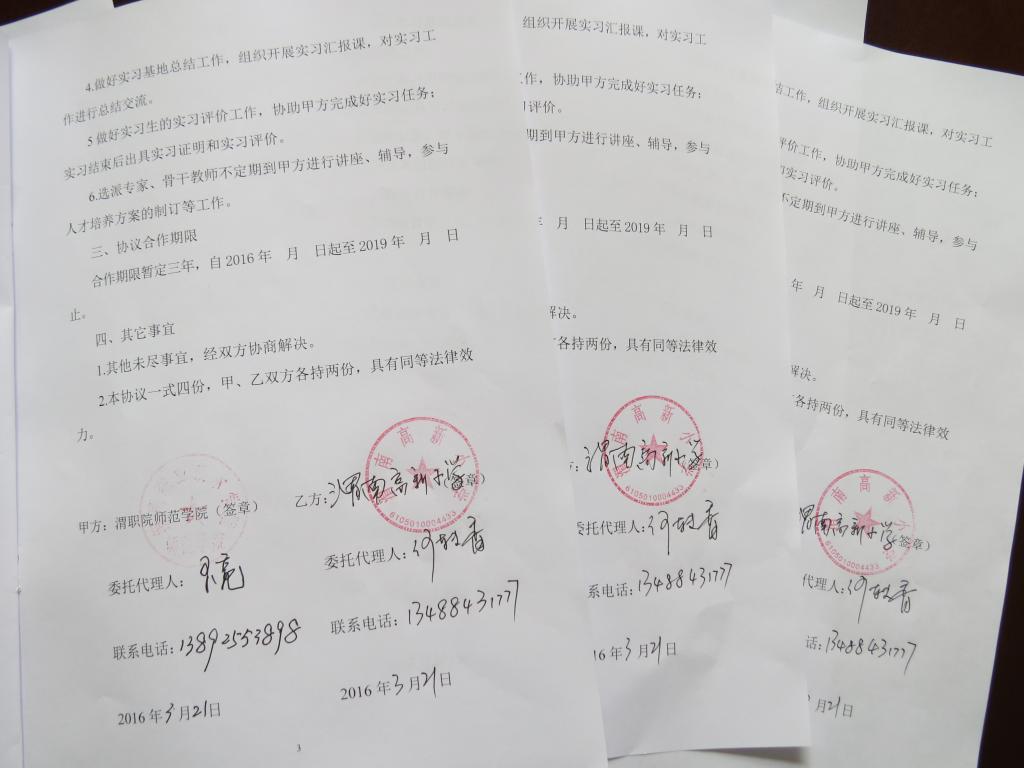 4.做好实习基地总结工作，组织开展实习汇报课，对实习工
作进行总结交流。
5 做好实习生的实习评价工作，协助甲方完成好实习任务；
实习结束后出具实习证明和实习评价。
6.选派专家、骨干教师不定期到甲方进行讲座、辅导，参与
人才培养方案的制订等工作。
三、协议合作期限
合作期限暂定三年，自 2016 年 月 日起至 2019 年 月 日
止。
四、其它事宜
1.其他未尽事宜，经双方协商解决。
2.本协议一式四份，甲、乙双方各持两份，具有同等法律效
力。
甲方：渭职院师范学院（签章）
委托代理人：
联系电话：13892553898
2016 年 3 月 21 日
乙方：渭南高新小学 签章）
渭南高新小学
6105010004433
委托代理人：何 香
联系电话：13488431777
2016 年 3 月 21 日
3
组织开展实习汇报课，对实习工
作，协助甲方完成好实习任务；
评价。
期到甲方进行讲座、辅导，参与
年 月 日起至 2019 年 月 日
解决。
各持两份，具有同等法律效
渭南高新小学 章）
6105010004433
委托代理人：何 香
系电话：13488431777
16 年 3 月 21 日
结工作，组织开展实习汇报课，对实习工
评价工作，协助甲方完成好实习任务；
和实习评价。
不定期到甲方进行讲座、辅导，参与
年 月 日起至 2019 年 月 日
解决。
各持两份，具有同等法律效
渭南高新小学 签章）
南高新小
6105010004433
代理人：何 香
话：13488431777
月 21 日